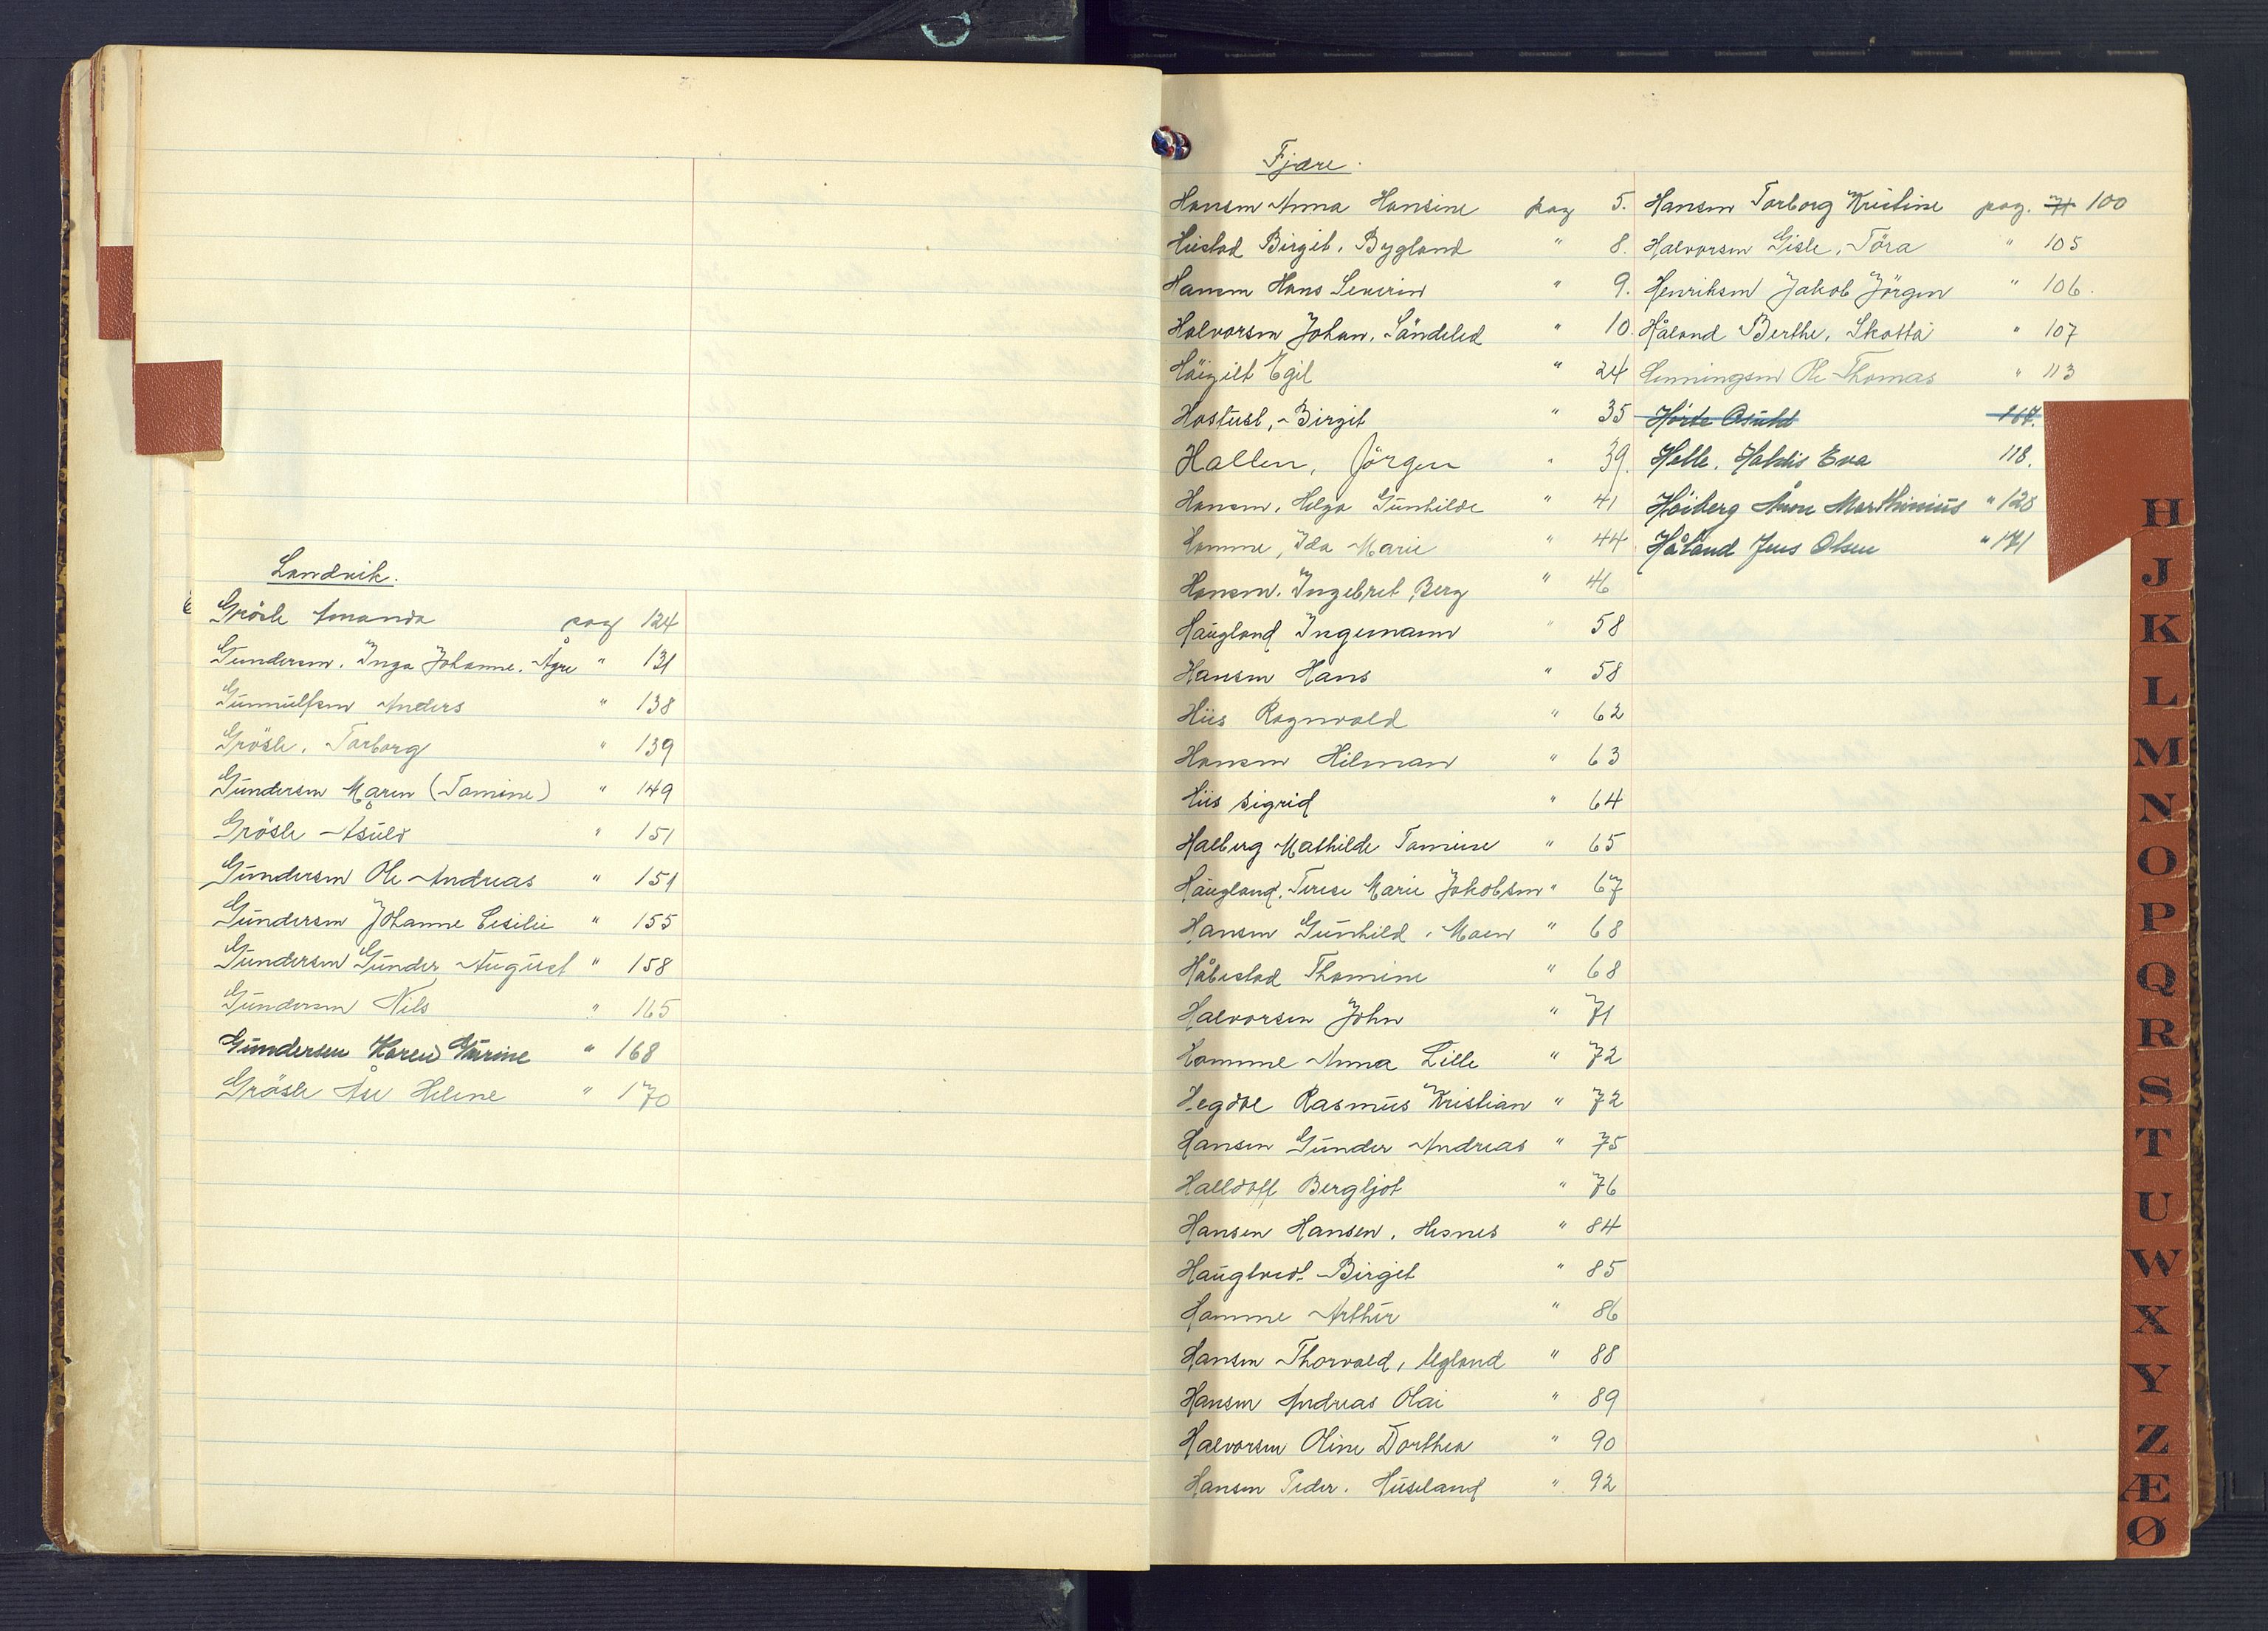 Landvik.
Grösle Amanda pag 124
Gundersen, Inga Johanne. Ågre " 131
Gunnulfsen Anders " 138
Grösle, Torborg " 139
Gundersen Maren (Tomine) " 149
Grösle Åsuld " 151
Gundersen Ole Andreas " 151
Gundersen Johanne Cesilie " 155
Gundersen Gunder August " 158
Gundersen Nils " 165
Gundersen Karen Gurine " 168
Grösle Åse Helene " 170
Fjære.
Hansen Anna Hansine pag 5.
Hustad Birgit, Bygland " 8.
Hansen Hans Severin " 9.
Halvorsen Johan, Söndeled " 10.
Höigilt Egil " 24
Hostust, Birgit " 35
Hallen, Jörgen " 39.
Hansen, Helga Gunhilde " 41
Homme, Ida Marie " 44
Hansen, Ingebret Berg " 46
Haugland Ingemann " 58
Hansen Hans " 58
Hiis Ragnvald " 62
Hansen Hilman " 63
Hiis Sigrid " 64
Halberg Mathilde Tomine " 65
Haugland, Terese Marie Jakobsen " 67
Hansen Gunhild, Moen " 68
Håbestad Thomine " 68
Halvorsen John " 71
Homme Anna Lille " 72
Hegdal Rasmus Kristian " 72
Hansen Gunder Andreas " 75
Halldoff Bergljot " 76
Hansen Hansen, Hesnes " 84
Haugtvedt Birgit " 85
Homme Arthur " 86
Hansen Thorvald, Ugland " 88
Hansen Andreas Olai " 89
Halvorsen Oline Dorthea " 90
Hansen Peder, Huseland " 92
Hansen Torborg Kristine pag. 71 100
Halvorsen Gisle, Töra " 105
Henriksen Jakob Jörgen " 106.
Håland Berthe, Skotta " 107
Henningsen Ole Thomas " 113
Hörte Åsuld 167.
Helle, Haldis Eva 118.
Höiberg Arne Marthinius " 128
Håland Jens Olsen " 171
H
J
K
L
M
N
O
P
Q
R
S
T
U
W
X
Y
Z
Æ
Ø